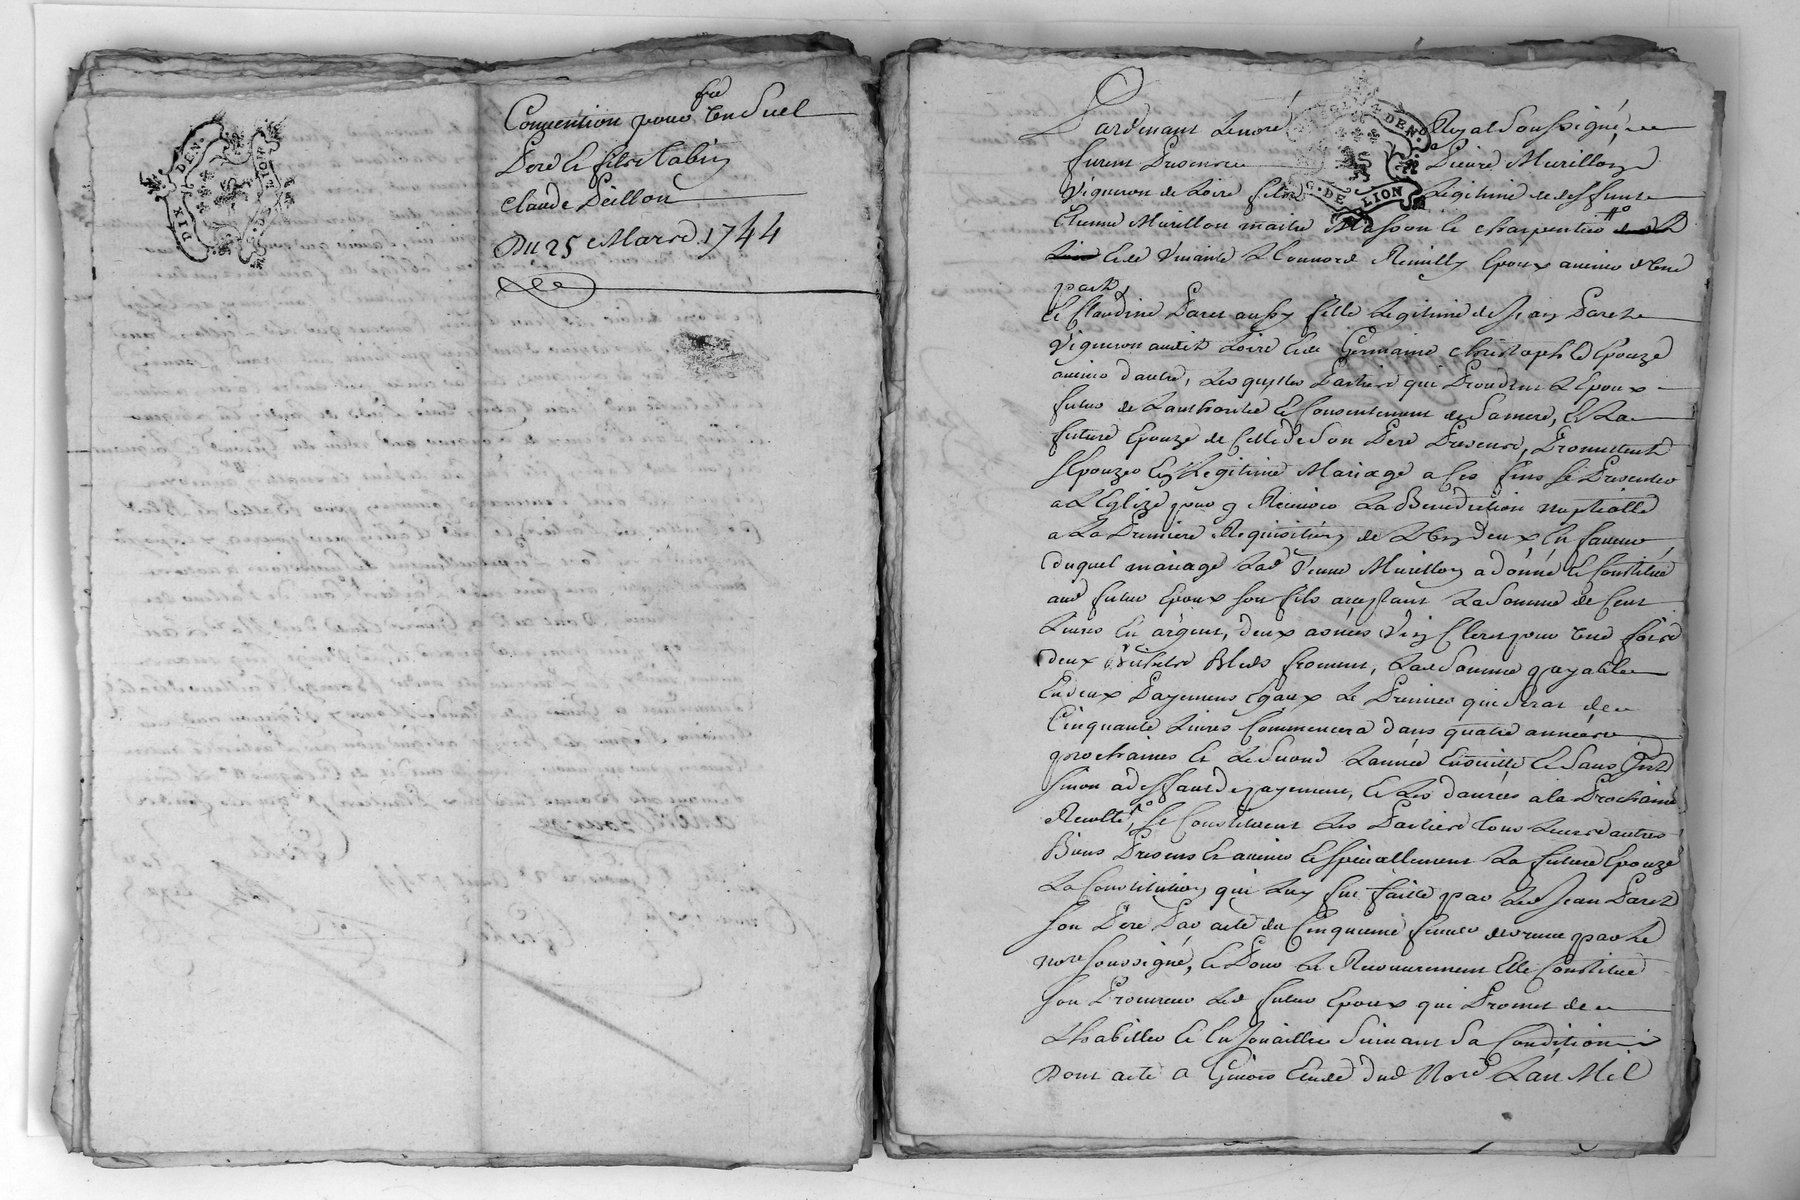 Convention pour
Pere et fils
Claude Peillon
Du 25 Mars 1744
DIX DEN.
G. DE LION
Pardevant le no.re Royal Soussigné
furent Presents Pierre Murillon
Vigneron de Loire fils Legitime de deffunt
Etienne Murillon maitre Masson et charpentier
et de vivante Leonnord Remilly Epoux avenir d'une
part
et Claudine Paret aussy fille Legitime de Jean Paret
Vigneron audit Loire et de Germaine Christophle Epouze
avenir d'autre, Lesquelles Parties qui Procedent L'Epoux
futur de L'authorité et Consentement de Sa mere, et La
future Epouze de Celle de Son Pere Presents, Promettent
S'Epouzer En Legitime Mariage a Ces fins se Presenter
a L'Eglize pour y Recevoir La Benediction nuptialle
a La Premiere Requisition de L'un deux En faveur
duquel mariage Lad Veuve Murillon a donné et Constitué
aud futur Epoux Son fils acceptant La Somme de Cent
Livres En argent, deux asnées Vin Cleret pour une fois
deux Bichets Bled froment, Lad Somme payable
En deux Payements Egaux Le Premier qui Sera de
Cinquante Livres Commencera dans quatre années
prochaines et Le Second L'année Ensuitte et Sans
Sinon a deffaut de payement, et Les danrées a la Prochaine
Recolte, se Constituent Les Parties tous Leurs autres
Biens Presents et avenir et Speciallement La future Epouze
La Constitution qui Luy fut faitte par Led Jean Paret
Son Pere Par acte du Cinquieme fevrier par le
no.re Soussigné, et Pour Le Recouvrement Elle Constitue
Son Procureur Led futur Epoux qui Promet de
L'habiller et Enjoailler Suivant Sa Condition
Dont acte a Givors Etude dud No.re L'an Mil